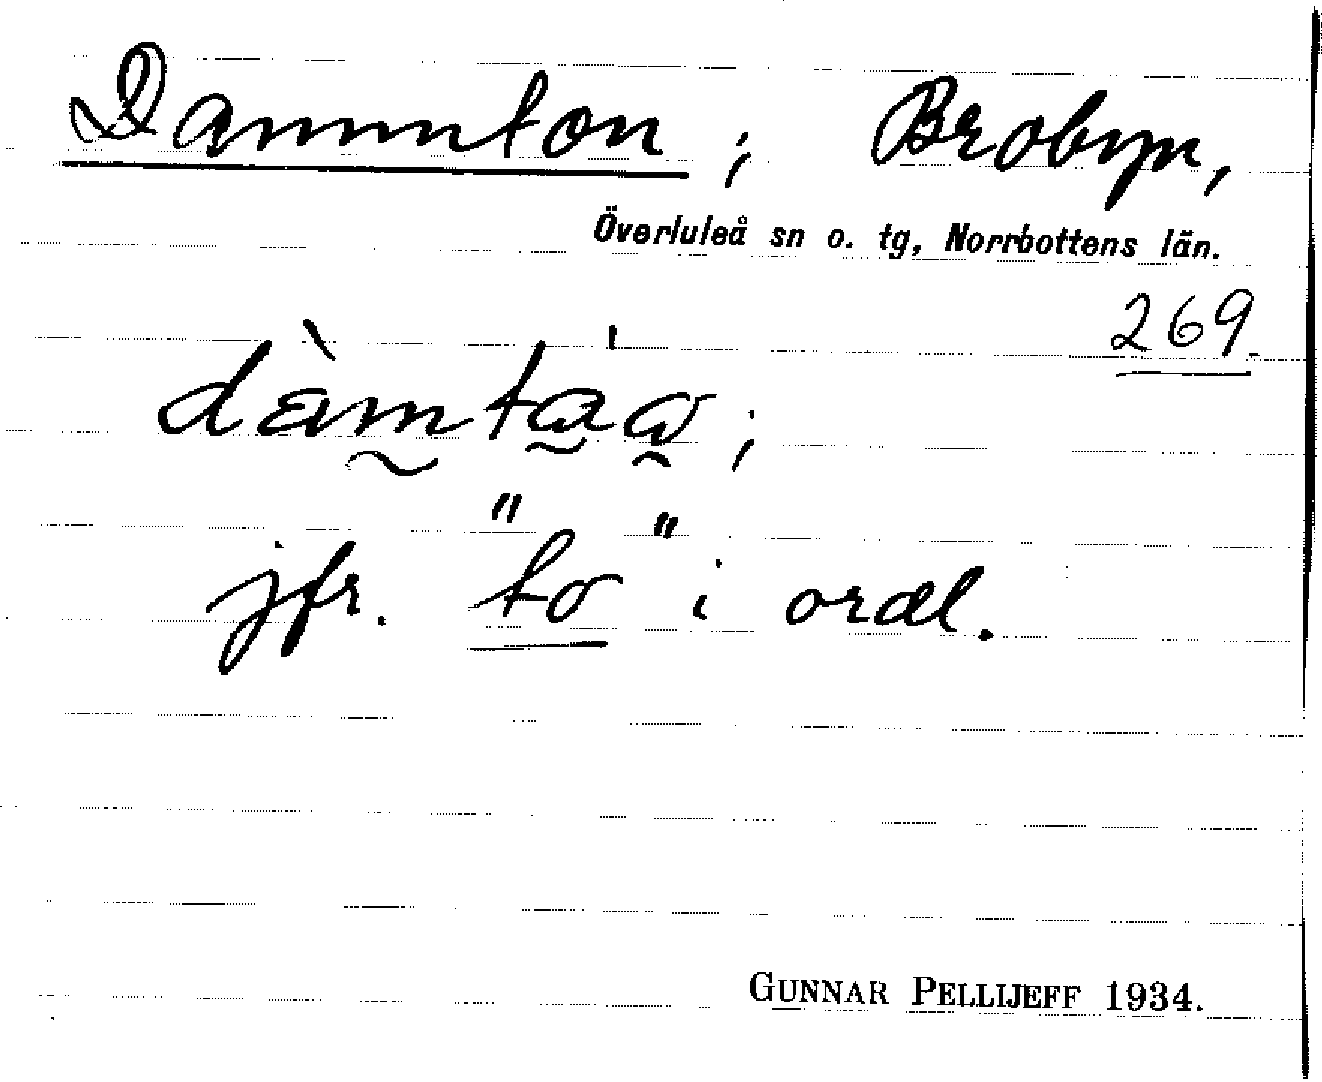 Dammton; Brobyn,
Överluleå sn o. tg, Norrbottens län.
269.
jfr. "to" i ordl.
GUNNAR PELLIJEFF 1934.